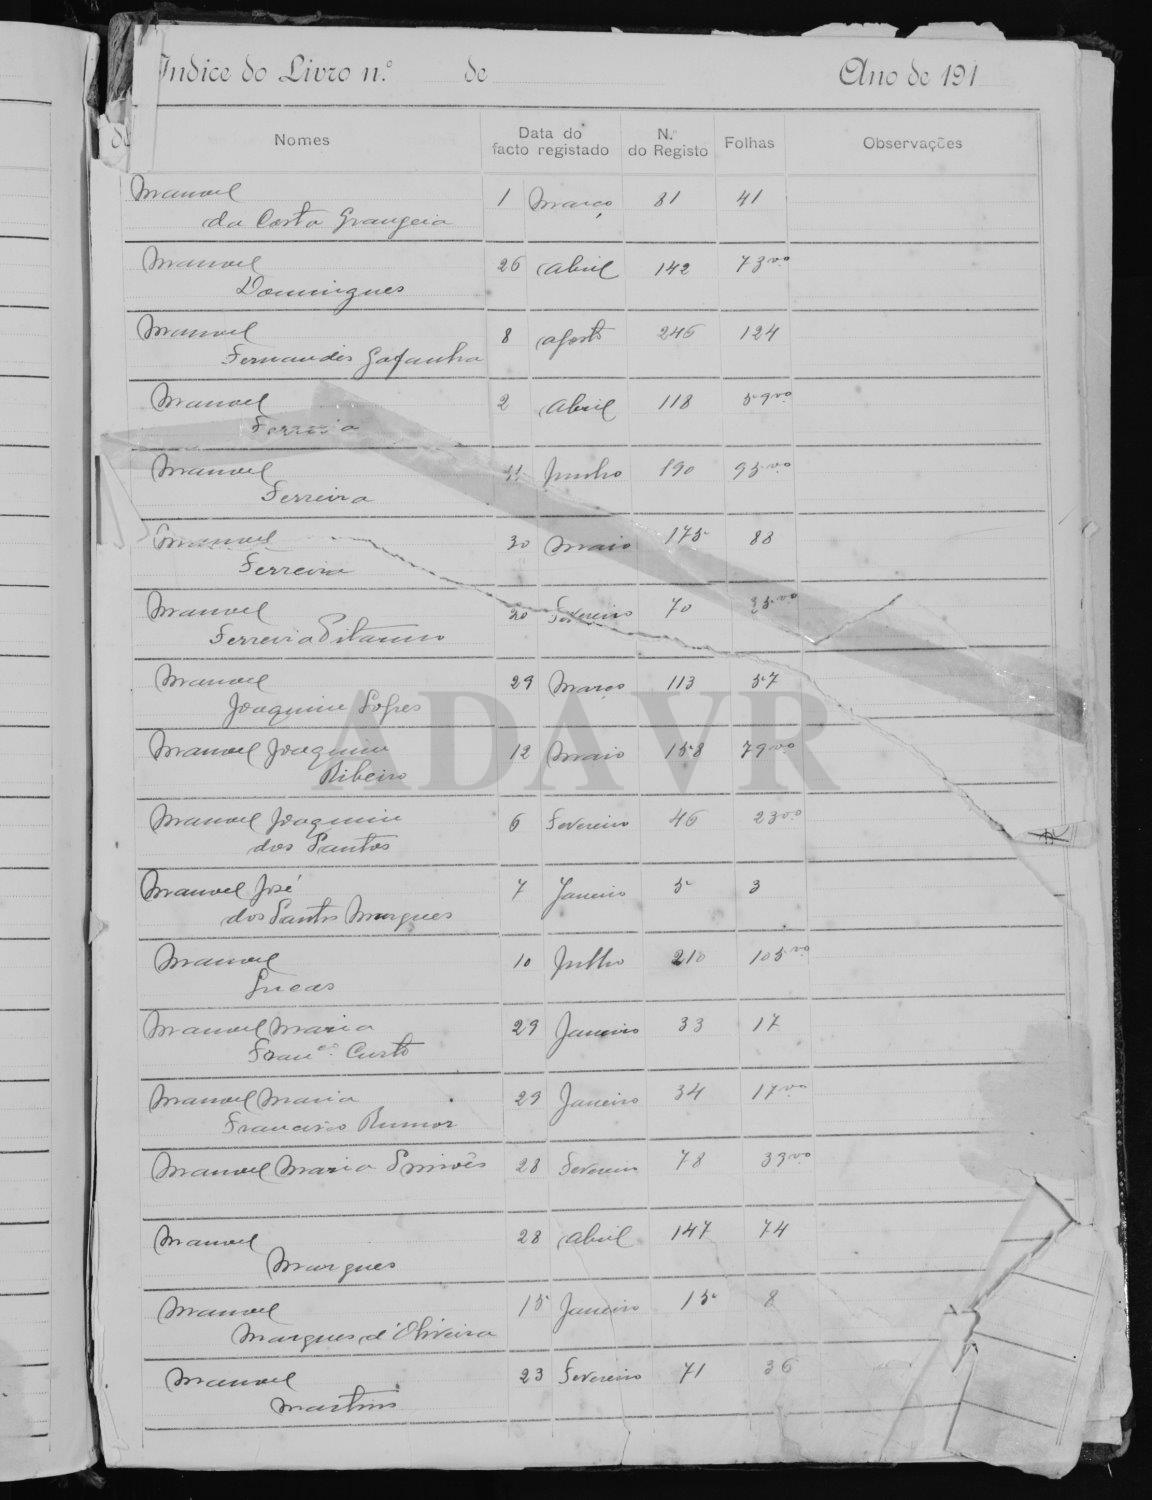 Indice do Livro n.º de Ano de 191
Nomes Data do facto registado N.º do Registo Folhas Observações
Manoel
da Costa Grangeia 1 Março 81 41
Manoel
Domingues 26 Abril 142 73 vo
Manoel
Fernandes Gafanha 8 Agosto 246 124
Manoel
Ferreira 2 Abril 118 59 vo
Manoel
Ferreira 11 Junho 190 95 vo
Manoel
Ferreira 30 Maio 175 88
Manoel
Ferreira 20 Fevereiro 70 35 vo
Manoel
Joaquim Lopes 29 Março 113 57
Manoel Joaquim
Ribeiro 12 Maio 158 79 vo
Manoel Joaquim
dos Santos 6 Fevereiro 46 23 vo
Manoel José
dos Santos Marques 7 Janeiro 5 3
Manoel
Lucas 10 Julho 210 105 vo
Manoel Maria
Franco Curto 29 Janeiro 33 17
Manoel Maria
Francisco Rumor 29 Janeiro 34 17 vo
Manoel Maria Simões 28 Fevereiro 78 39 vo
Manoel
Marques 28 Abril 147 74
Manoel
Marques d'Oliveira 15 Janeiro 15 8
Manoel
Martins 23 Fevereiro 71 36
ADAVR